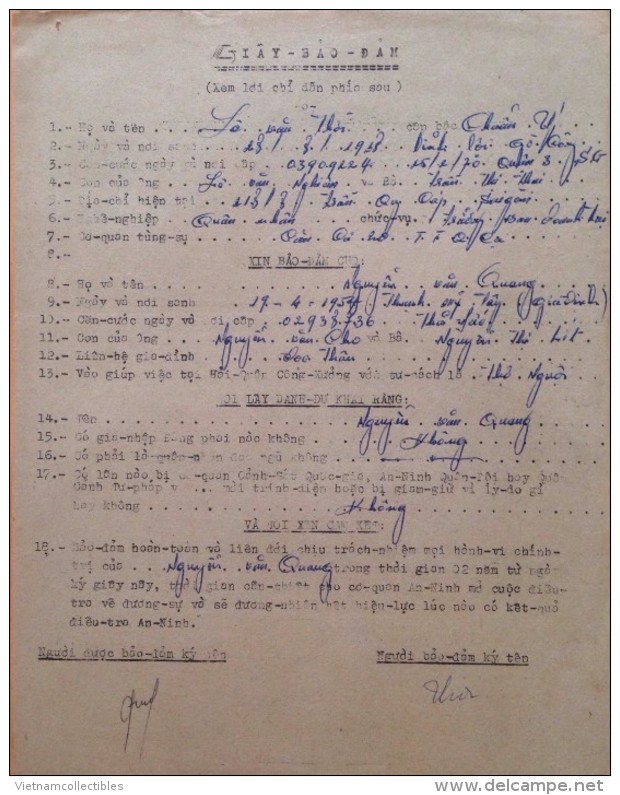 GIẤY-BẢO-ĐẢM
(Xem lời chỉ dẫn phía sau)
1.- Họ và tên . . . Lê văn Thời . . . cấp bậc Chuẩn Úy
2.- Ngày và nơi sanh . . . 28 / 8 / 1928 . Gò Công
3.- Căn-cước ngày và nơi cấp . 03909224 . 15/2/70. Quận 3.
4.- Con của Ông . . Lê văn . . và Bà . . Trần Thị
5.- Địa-chỉ hiện tại . 213/8 Trần Quý Cáp Saigon
6.- Nghề-nghiệp . . Quân nhân . . . chức-vụ . Trưởng ban
7.- Cơ-quan tùng-sự . . .
8.-
XIN BẢO-ĐẢM CHO:
8.- Họ và tên . . . . . Nguyễn văn Quang
9.- Ngày và nơi sanh . . . 17 - 4 - Thạnh mỹ Tây (Gia Định)
10.- Căn-cước ngày và nơi cấp . 02938736
11.- Con của Ông . . Nguyễn văn Cho và Bà . Nguyễn Thị Lit
12.- Liên-hệ gia-đình . . . Độc Thân
13.- Vào giúp việc tại Hải-Quân Công-Xưởng với tư-cách là . Thợ Nguội
TÔI LẤY DANH-DỰ KHAI RẰNG:
14.- Tên . . . . . Nguyễn văn Quang
15.- Có gia-nhập Đảng phái nào không . . . Không
16.- Có phải là quân-nhân đào ngũ không
17.- Có lần nào bị cơ-quan Cảnh-Sát Quốc-gia, An-Ninh Quân-Đội hay Quân
Cảnh Tư-pháp v... mời trình-diện hoặc bị giam-giữ vì lý-do gì
hay không . . . . . Không
VÀ TÔI XIN CAM KẾT:
18.- Bảo-đảm hoàn-toàn và liên đới chịu trách-nhiệm mọi hành-vi chính-
trị của . . Nguyễn văn Quang trong thời gian 02 năm từ ngày
ký giấy này, thời gian cần-thiết cho cơ-quan An-Ninh mở cuộc điều-
tra về đương-sự và sẽ đương-nhiên hết hiệu-lực lúc nào có kết-quả
điều-tra An-Ninh.
Người được bảo-đảm ký tên
Người bảo-đảm ký tên
Vietnamcollectibles
delcampe.net